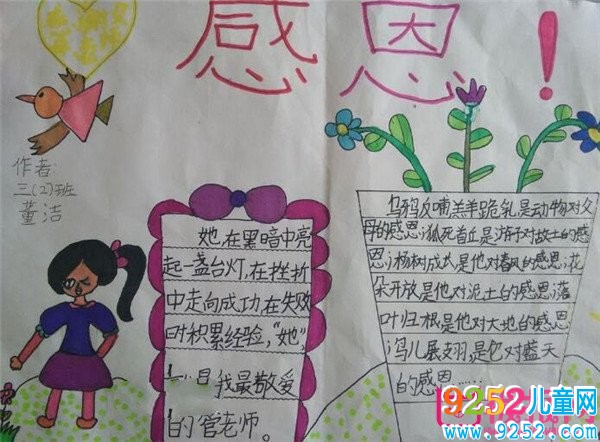 感恩！
作者
三(2)班
董洁
她,在黑暗中亮
起一盏台灯,在挫折
中走向成功,在失败
时积累经验,“她”
我最敬爱
的管老师。
乌鸦反哺羔羊跪乳是动物对父
母的感恩;狐死首丘是游子对故土的感
恩;杨树成式是他对春风的感恩;花
朵开放是他对泥土的感恩;落
叶归根是他对大地的感恩
鸟儿展翅,是它对蓝天
的感恩……
9252儿童网
www.9252.com